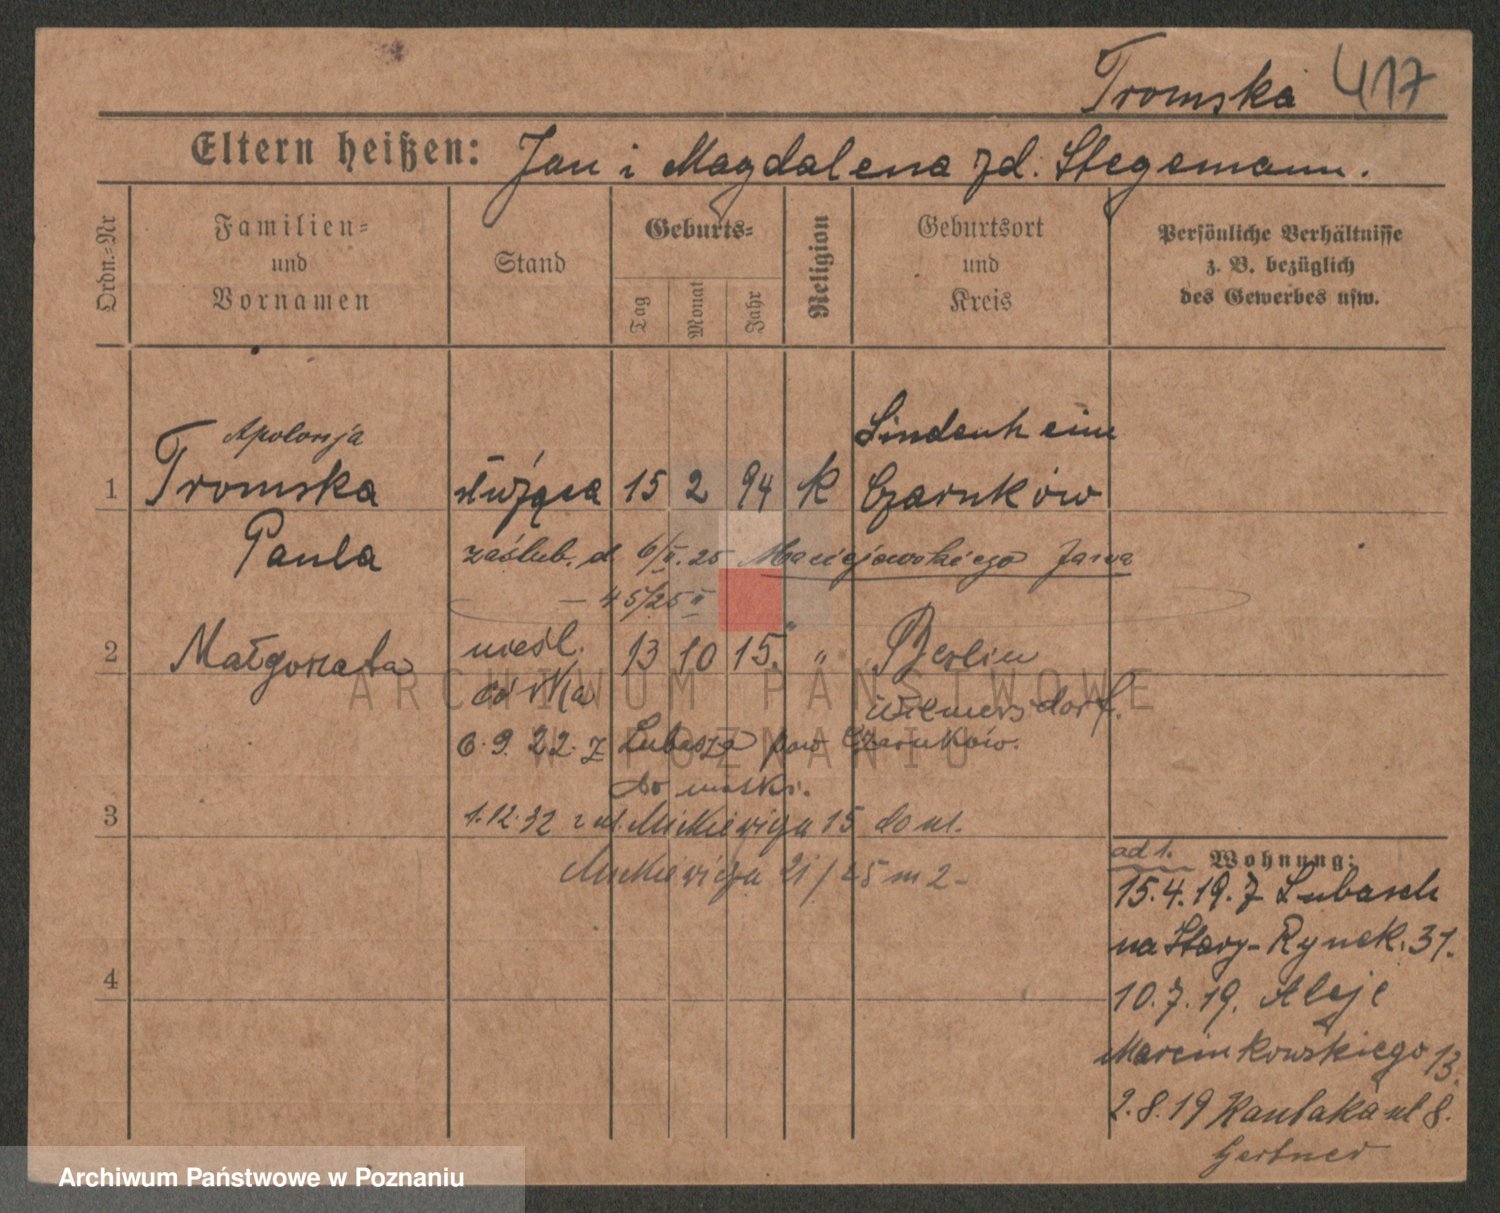 Tromska 417
Eltern heißen: Jan i Magdalena zd. Stegemann.
Ordn.=Nr
Familien=
und
Vornamen
Stand
Geburts=
Tag
Monat
Jahr
Religion
Geburtsort
und
Kreis
Persönliche Verhältnisse
z. B. bezüglich
des Gewerbes usw.
Apolonja
1 Tromska służąca 15 2 94 k Lindenheim
Czarnków
Paula zaślub. d. 6/II.25 Maciejewskiego Jana
45/25 II
2 Małgorzata nieśl. 13 10 15. " Berlin
córka Wilmersdorf.
6.9.22. z Lubasza pow Czarnków.
do matki.
3 1.12.32 z ul. Mickiewicza 15 do ul.
Mickiewicza 21/25 m 2-
4
ad 1. Wohnung:
15.4.19. z Lubasch
na Stary-Rynek. 37.
10.7.19. Aleje
Marcinkowskiego 13.
2.8.19 Kantaka ul 8.
Gertner
ARCHIWUM PAŃSTWOWE
W POZNANIU
Archiwum Państwowe w Poznaniu